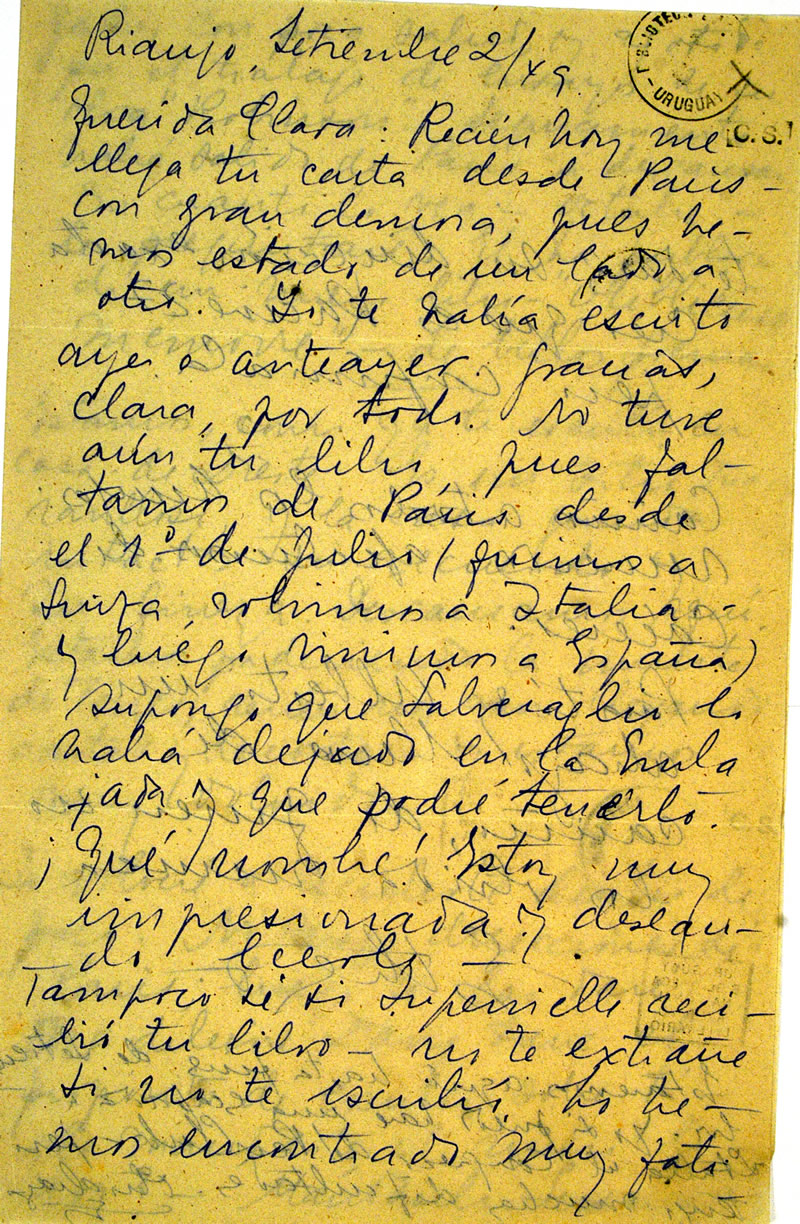 Rianjo, Setiembre 2/49
BIBLIOTECA
URUGUAY
[C.S.]
Querida Clara: Recién hoy me
llega tu carta desde París -
con gran demora, pues he-
mos estado de un lado a
otro. Yo te había escrito
ayer o anteayer. Gracias,
Clara, por todo. No tuve
aún tu libro, pues fal-
tamos de París desde
el 1º de Julio (fuimos a
Suiza, volvimos a Italia -
y luego vinimos a España)
supongo que Salveraglio lo
habrá dejado en la Emba
jada y que podré tenerlo.
¡Qué nombre! Estoy muy
impresionada y desean-
do leerlo -
Tampoco sé si Supervielle reci-
bió tu libro - no te extrañe
si no te escribió. Lo he-
mos encontrado muy fati